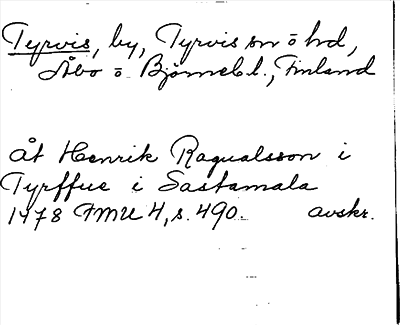 Tyrvis, by, Tyrvis sn o hd,
Åbo o Björneb. l., Finland
åt Henrik Ragualsson i
Tyrffue i Sastamala
1478 FMU 4, s. 490. avskr.